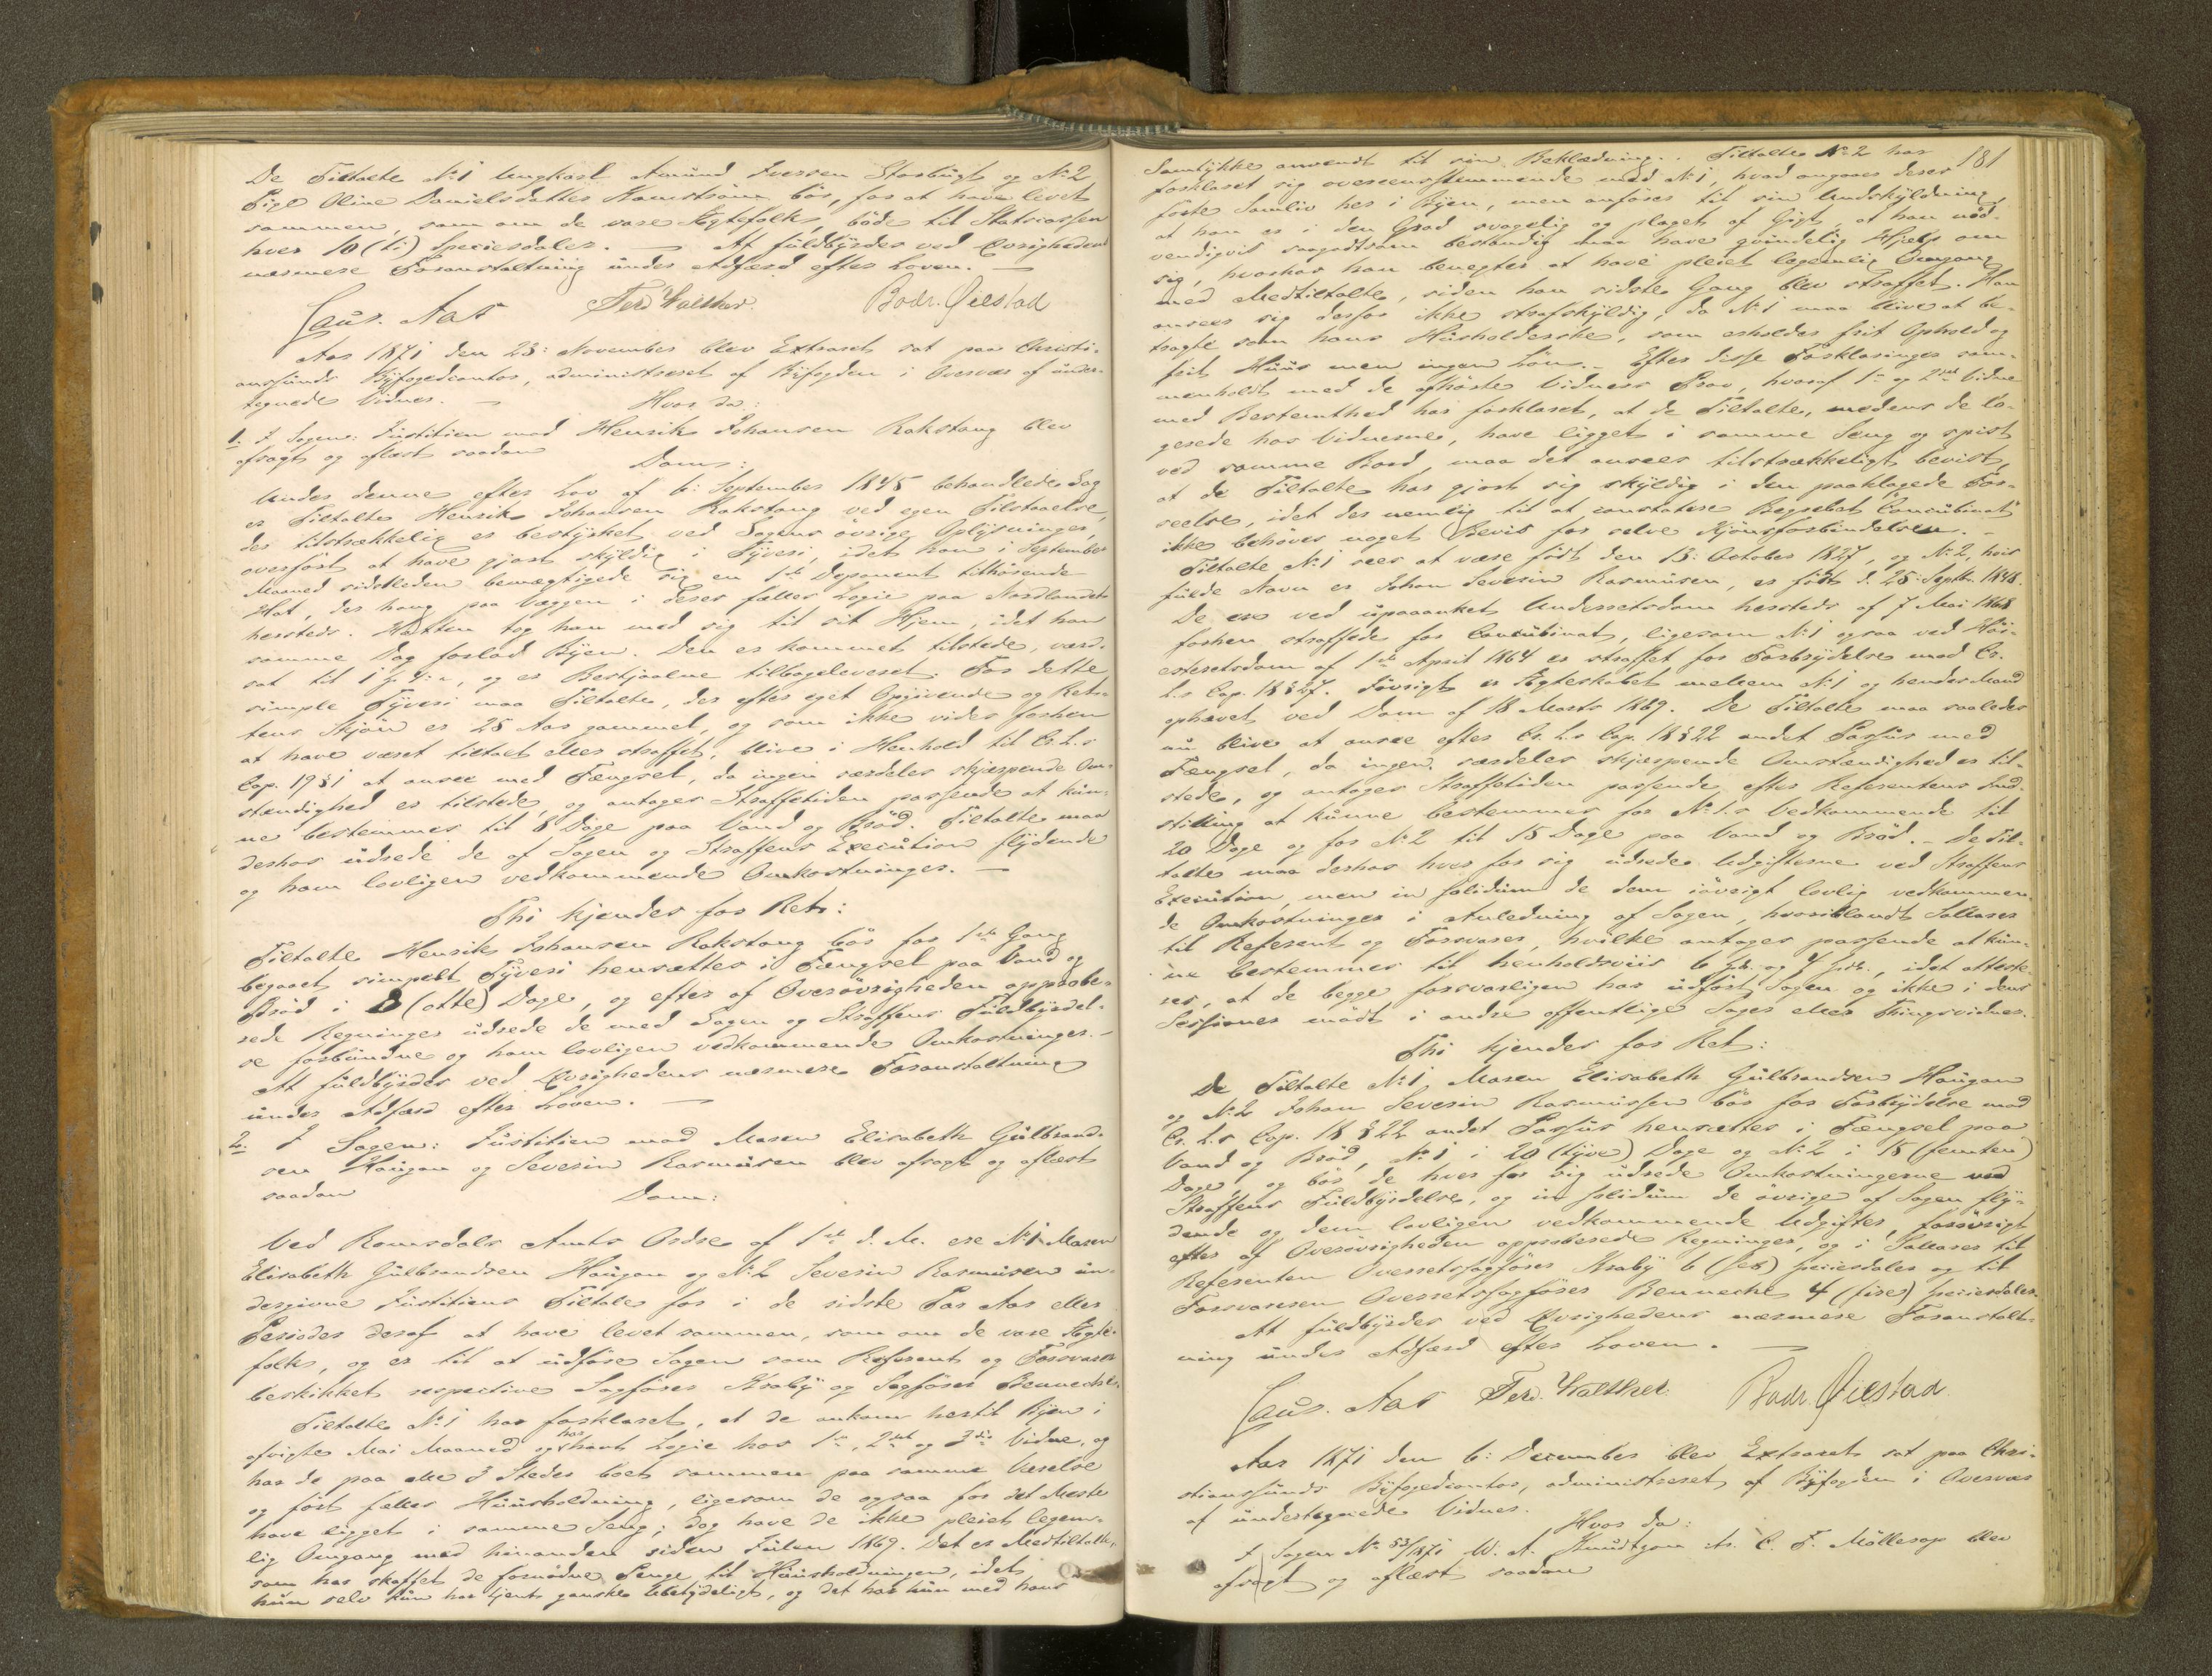 De Tiltalte N:1 Ungkarl Amund Iversen Storbugt og N:2
Pige Oline Danielsdatter Kamstrøm bör, for at have levet
sammen, som om de vare Ægtefolk, böde til Statscassen
hver 10 (ti) Speciesdaler. — At fuldbyrdes ved Øvrighedens
nærmere Foranstaltning under Adfærd efter Loven. —
Laur. Aas Ferd. Walther. Bodr. Øiestad
Aar 1871 den 23: November blev Extraret sat paa Christi-
ansunds Byfogedcontor, administreret af Byfogden i Overvær af under-
tegnede Vidner. — Hvor da:
1. I Sagen: Justitien mod Henrik Johansen Rakstang blev
afsagt og aflæst saadan Dom:
Under denne efter Lov af 6: September 1845 behandlede Sag
er Tiltalte Henrik Johansen Rakstang ved egen Tilstaaelse,
der tilstrækkelig er bestyrket ved Sagens övrige Oplysninger,
overfört at have gjort skyldig i Tyveri, idet han i September
Maaned sidstleden bemægtigede sig en 1ste Deponent tilhörende
Hat, der hang paa Væggen i deres fælles Logie paa Nordlandet
hersteds. Hatten tog han med sig til sit Hjem, idet han
samme Dag forlod Byen. Den er kommet tilstede, værd-
sat til 1 , og er Bestjaalne tilbageleveret. For dette
simple Tyveri maa Tiltalte, der efter eget Opgivende og Ret-
tens Skjön er 25 Aar gammel, og som ikke vides forhen
at have været tiltalt eller straffet, blive i Henhold til Cr. L.s
Cap. 19 § 1 at ansee med Fængsel, da ingen særdeles skjærpende Om-
stændighed er tilstede, og antages Straffetiden passende at kun-
ne bestemmes til 8 Dage paa Vand og Bröd. Tiltalte maa
derhos udrede de af Sagen og Straffens Execution flydende
og ham lovligen vedkommende Omkostninger. —
Thi kjendes for Ret:
Tiltalte Henrik Johansen Rakstang bör for 1ste Gang
begaaet simpelt Tyveri hensættes i Fængsel paa Vand og
Bröd i 8 (otte) Dage, og efter af Overövrigheden approbe-
rede Regninger udrede de med Sagen og Straffens Fuldbyrdel-
se forbundne og ham lovligen vedkommende Omkostninger. —
At fuldbyrdes ved Øvrighedens nærmere Foranstaltning
under Adfærd efter Loven. —
2. I Sagen: Justitien mod Maren Elisabeth Gulbrand-
sen Haugan og Severin Rasmusen blev afsagt og aflæst
saadan Dom:
Ved Romsdals Amts Ordre af 1ste d. M. ere N:1 Maren
Elisabeth Gulbrandsen Haugan og N:2 Severin Rasmusen un-
dergivne Justitiens Tiltale for i de sidste Par Aar eller
Perioder deraf at have levet sammen, som om de vare Ægte-
folk, og er til at udföre Sagen som Referent og Forsvarer
beskikket respective Sagförer Kraby og Sagförer Benneche.
Tiltalte N:1 har forklaret, at de ankom hertil Byen i
afvigte Mai Maaned og har havt Logie hos 1ste, 2det og 3die Vidne, og
har de paa alle 3 Steder boet sammen paa samme Værelse
og fört fælles Huusholdning, ligesom de ogsaa for det Meste
have ligget i samme Seng; dog have de ikke pleiet legem-
lig Omgang med hinanden siden Julen 1869. Det er Medtiltalte,
som har skaffet de fornødne Penge til Huusholdningen, idet
hun selv kun har tjent ganske Ubetydeligt, og det har hun med hans
181
Samtykke anvendt til sin Beklædning. . Tiltalte N:2 har
forklaret sig overeensstemmende med N:1, hvad angaaer deres
förste Samliv her i Byen, men anförer til sin Undskyldning,
at han er i den Grad svagelig og plaget af Gigt, at han nöd-
vendigvis saagodtsom bestandig maa have qvindelig Hjælp om
sig, hvorhos han benegter at have pleiet legemlig Omgang
med Medtiltalte, siden han sidste Gang blev straffet. Han
ansees sig derfor ikke strafskyldig, da N:1 maa blive at be-
tragte som hans Husholderske, som erholder frit Ophold og
frit Huus men ingen Lön. – Efter disse Forklaringer sam-
menholdt med de afhörte Vidners Prov, hvoraf 1ste og 2det Vidne
med Bestemthed har forklaret, at de Tiltalte, medens de lo-
gerede hos Vidnerne, have ligget i samme Seng og spist
ved samme Bord, maa det ansees tilstrækkeligt bevist,
at de Tiltalte har gjort sig skyldig i den paaklagede For-
seelse, idet der nemlig til at constatere Begrebet "Concubinat"
ikke behöves noget Beviis for selve Kjönsforbindelsen. –
Tiltalte N:1 sees at være födt den 13: October 1827, og N:2, hvis
fulde Navn er Johan Severin Rasmusen, er födt d. 25: Septbr. 1848.
De ere ved upaaanket Underretsdom hersteds af 7 Mai 1868
forhen straffede for Concubinat, ligesom N:1 ogsaa ved Høi-
esteretsdom af 1ste April 1864 er straffet for Forbrydelse mod Cr.
L.s Cap. 18 § 27. Iövrigt er Ægteskabet mellem N:1 og hendes Mand
ophævet ved Dom af 18 Marts 1869. De Tiltalte maa saaledes
nu blive at ansee efter Cr. L.s Cap. 18 § 22 andet Passus med
Fængsel, da ingen særdeles skjærpende Omstændighed er til-
stede, og antages Straffetiden passende efter Referentens Ind-
stilling at kunne bestemmes for N:1.s Vedkommende til
20 Dage og for N:2 til 15 Dage paa Vand og Bröd. – De Til-
talte maa derhos hver for sig udrede Udgifterne ved Straffens
Execution, men in solidum de dem iövrigt lovlig vedkommen-
de Omkostninger i Anledning af Sagen, hvoriblandt Sallarer
til Referent og Forsvarer, hvilke antages passende at kun-
ne bestemmes til henholdsviis 6 Spd. og 4 Spd., idet atteste-
res, at de begge forsvarligen har udfört Sagen og ikke i dens
Sessioner mödt i andre offentlige Sager eller Thingsvidner.
Thi kjendes for Ret:
De Tiltalte N:1 Maren Elisabeth Gulbrandsen Haugan
og N:2 Johan Severin Rasmussen bör for Forbrydelse mod
Cr. L.s Cap. 18 § 22 andet Passus hensættes i Fængsel paa
Vand og Bröd, N:1 i 20 (tyve) Dage og N:2 i 15 (femten)
Dage, og bör de hver for sig udrede Omkostningerne ved
Straffens Fuldbyrdelse, og in solidum de övrige af Sagen fly-
dende og dem lovligen vedkommende Udgifter, forövrigt
efter af Overövrigheden approberede Regninger, og i Sallarer til
Referenten Overretssagförer Kraby 6 (sex) Speciesdaler og til
Forsvareren Overretssagförer Benneche 4 (fire) Speciesdaler.
At fuldbyrdes ved Øvrighedens nærmere Foranstalt-
ning under Adfærd efter Loven. —
Laur. Aas Ferd. Walther. Bodr. Øiestad.
Aar 1871 den 6: December blev Extraret sat paa Chri-
stiansunds Byfogedcontor, administreret af Byfogden i Overvær
af undertegnede Vidner. Hvor da:
I Sagen N: 53/1871 W. A. Knudtzon ctr. C. F. Möllerop blev
afsagt og aflæst saadan